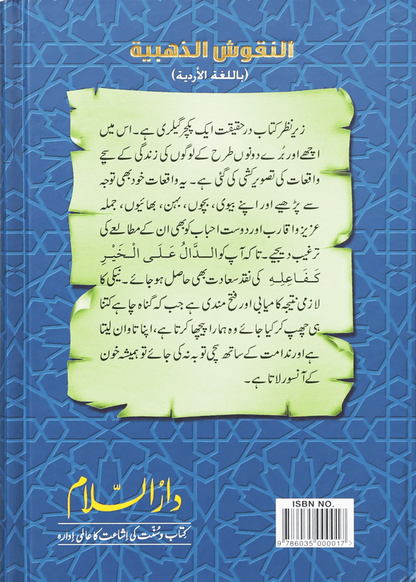 النقوش الذهبية
(باللغة الأردية)
زیر نظر کتاب در حقیقت ایک پکچر گیلری ہے۔ اس میں
اچھے اور بُرے دونوں طرح کے لوگوں کی زندگی کے سچے
واقعات کی تصویر کشی کی گئی ہے۔ یہ واقعات خود بھی توجہ
سے پڑھیے اور اپنے بیوی، بچوں، بہن، بھائیوں، جملہ
عزیز و اقارب اور دوست احباب کو بھی ان کے مطالعے کی
ترغیب دیجیے۔ تاکہ آپ کو الدَّالُّ عَلَى الْخَيْرِ
كَفَاعِلِهِ کی نقد سعادت بھی حاصل ہو جائے۔ نیکی کا
لازمی نتیجہ کامیابی اور فتح مندی ہے جب کہ گناہ چاہے کتنا
ہی چھپ کر کیا جائے وہ ہمارا پیچھا کرتا ہے، اپنا تاوان لیتا
ہے اور ندامت کے ساتھ سچی توبہ نہ کی جائے تو ہمیشہ خون
کے آنسو رلاتا ہے۔
دارُالسّلام
کتاب و سنّت کی اشاعت کا عالمی ادارہ
ISBN NO.
9 786035 000017